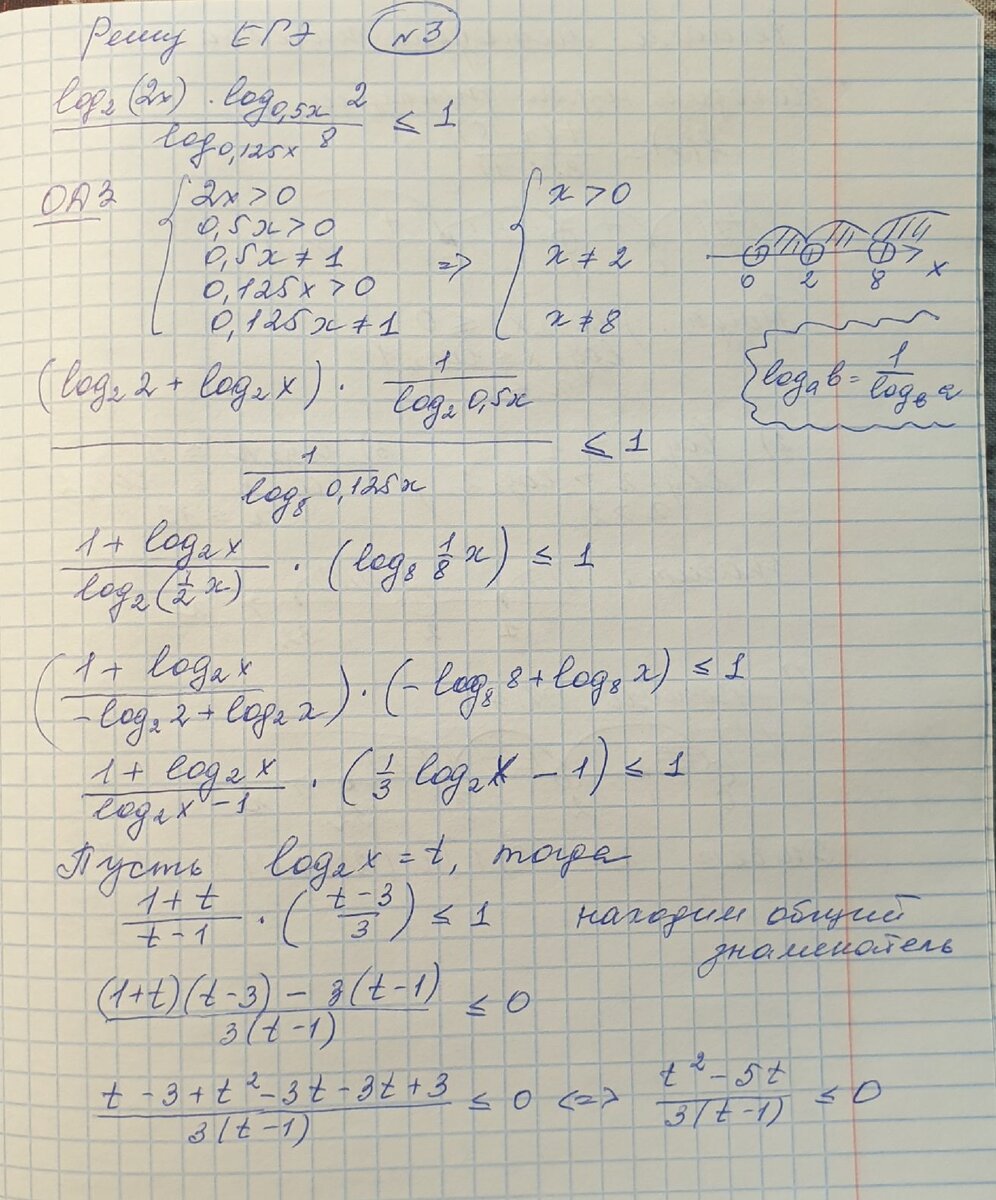 Решу ЕГЭ №3
log₂(2x) · log₀,₅ₓ 2 / log₀,₁₂₅ₓ 8 ≤ 1
ОДЗ { 2x > 0 ; 0,5x > 0 ; 0,5x ≠ 1 ; 0,125x > 0 ; 0,125x ≠ 1 => { x > 0 ; x ≠ 2 ; x ≠ 8
0 2 8 x
logₐ b = 1 / log_b a
(log₂ 2 + log₂ x) · 1 / log₂ 0,5x / 1 / log₈ 0,125x ≤ 1
1 + log₂ x / log₂(1/2 x) · (log₈ 1/8 x) ≤ 1
(1 + log₂ x / -log₂ 2 + log₂ x) · (-log₈ 8 + log₈ x) ≤ 1
1 + log₂ x / log₂ x - 1 · (1/3 log₂ x - 1) ≤ 1
Пусть log₂ x = t, тогда
1 + t / t - 1 · (t - 3 / 3) ≤ 1 находим общий
знаменатель
(1+t)(t-3) - 3(t-1) / 3(t-1) ≤ 0
t - 3 + t² - 3t - 3t + 3 / 3(t-1) ≤ 0 <=> t² - 5t / 3(t-1) ≤ 0